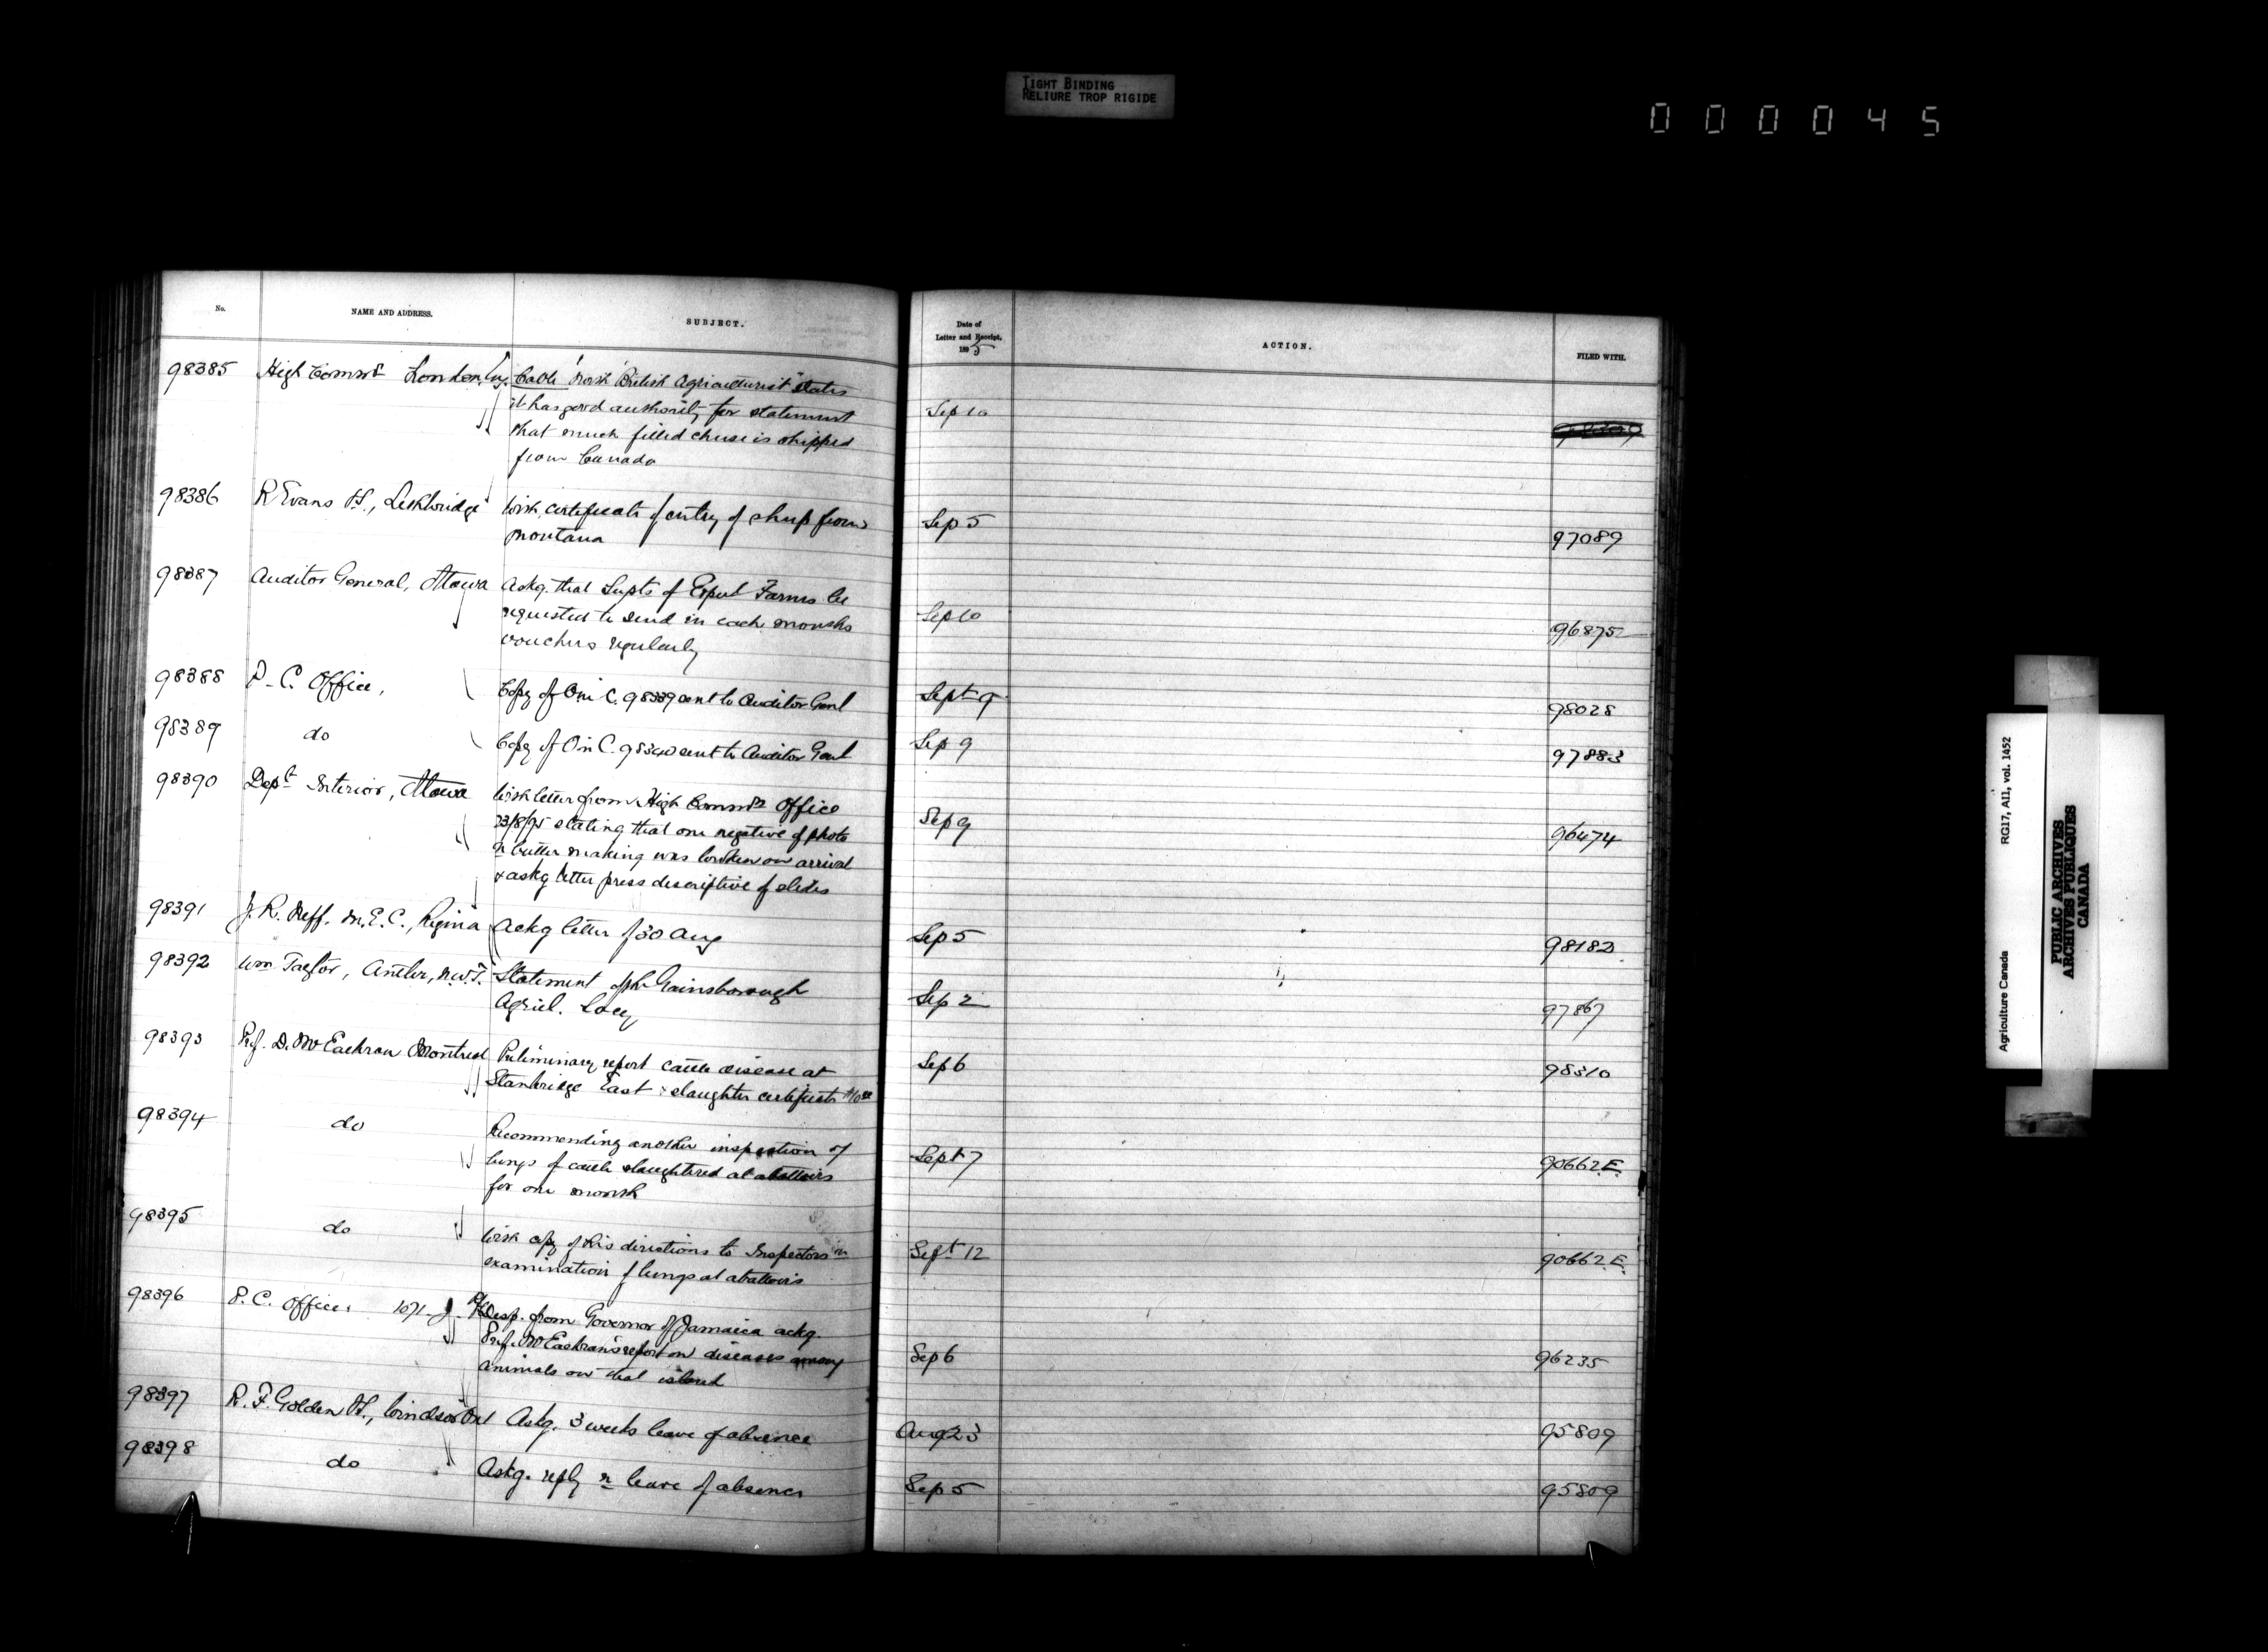 TIGHT BINDING
RELIURE TROP RIGIDE
000045
No. NAME AND ADDRESS. SUBJECT. Date of Letter and Receipt, 1895 ACTION. FILED WITH.
98385 High Commr London, Cable North British Agriculturist states
it has good authority for statement Sep 10
that much filled cheese is shipped
from Canada
98386 R Evans Lethbridge With certificate of entry of sheep from Sep 5
Montana 97089
98387 Auditor General, Ottawa Askg. that Supts of Exptl Farms be
requested to send in each months Sep 10 96875
vouchers regularly
98388 P. C. Office, Copy of O in C. 98339 sent to Auditor Genl Sept 9 98028
98389 do Copy of O in C. 98340 sent to Auditor Genl Sep 9 97883
98390 Dept Interior, Ottawa With letter from High Commrs Office
23/8/95 stating that one negative of photo Sep 9 96474
butter making was broken on arrival
& askg letter press descriptive of slides
98391 J. R. Neff. M.E.C., Regina Ackg letter of 30 Aug Sep 5 98182
98392 Wm Taylor, Antler, N.W.T. Statement of the Gainsborough Sep 2 97867
Agricl. Socy
98393 Prof. D. McEachran Montreal Preliminary report cattle disease at Sep 6 98310
Stanbridge East & slaughter certificate $10.00
98394 do Recommending another inspection of
lungs of cattle slaughtered at abattoirs Sept 7 90662.E.
for one month
98395 do With copy of his directions to Inspectors in Sept 12 90662.E.
examination of lungs at abattoirs
98396 P. C. Office. 1071 J. Desp. from Governor of Jamaica ackg.
Prof. McEachran's report on diseases among Sep 6 96235
animals on that island
98397 R. F. Golden Windsor Ont Askg. 3 weeks leave of absence Aug 23 95809
98398 do Askg. reply re leave of absence Sep 5 95809
Agriculture Canada RG17, AII, vol. 1452
PUBLIC ARCHIVES
ARCHIVES PUBLIQUES
CANADA